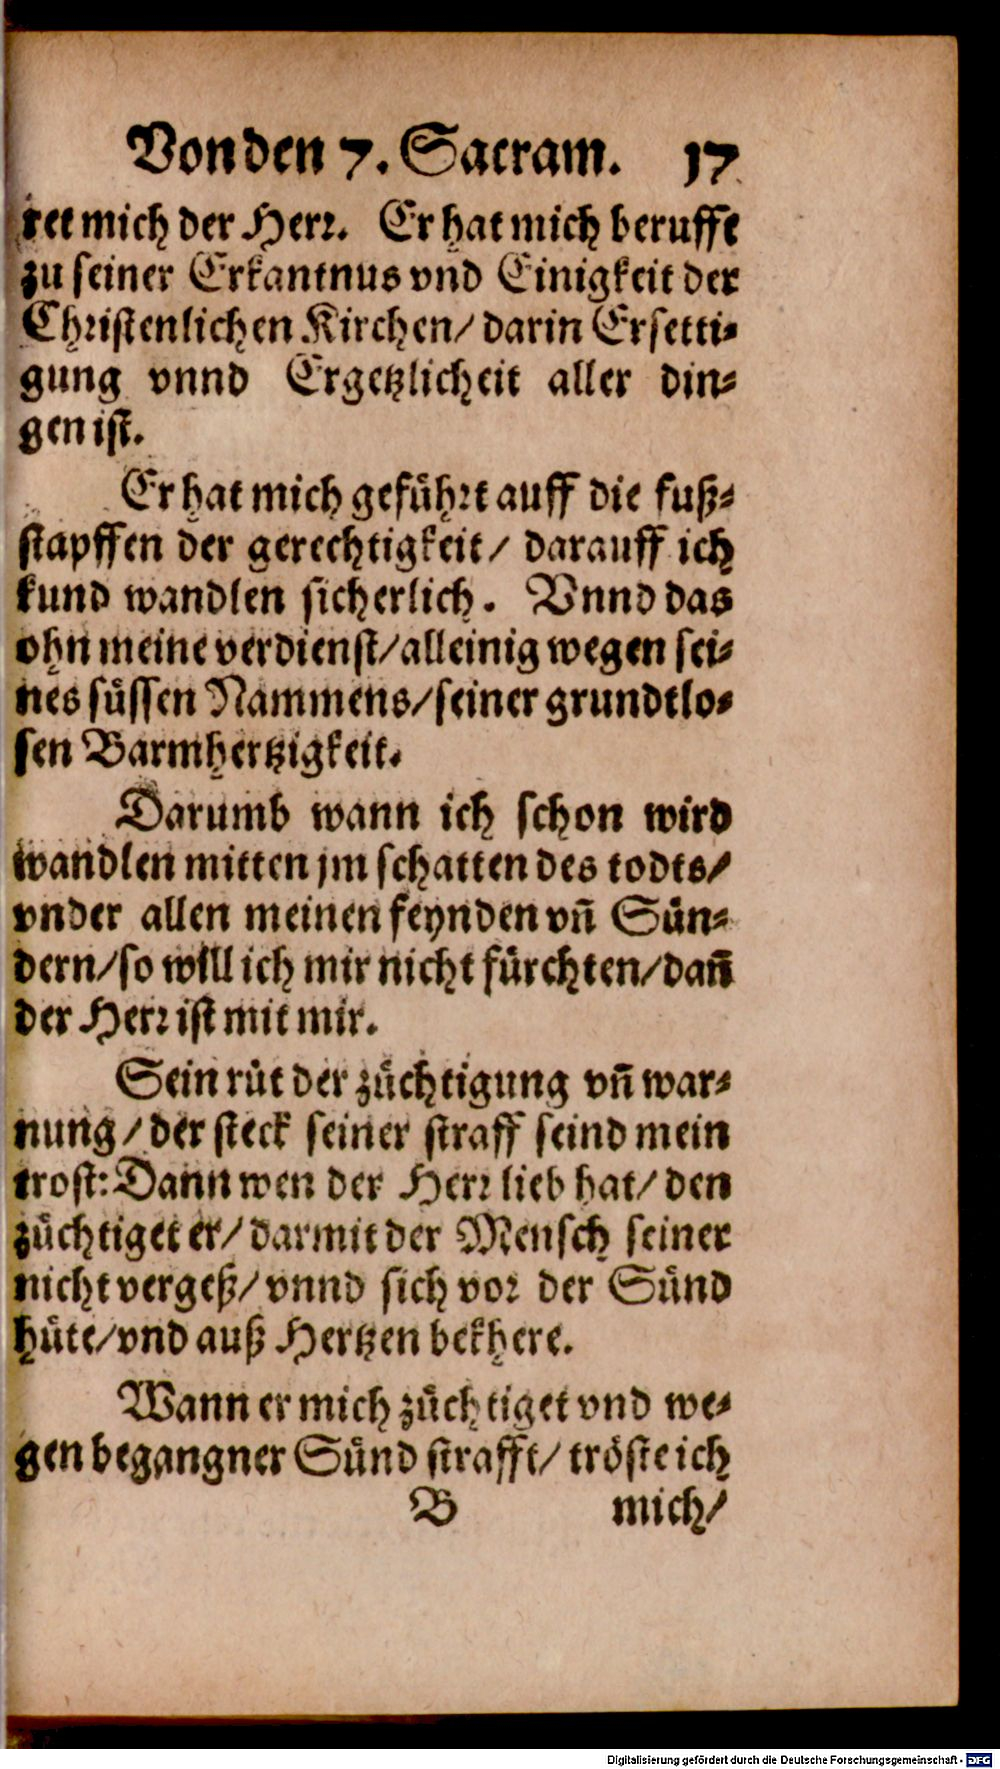 Von den 7. Sacram. 17
ret mich der Herr. Er hat mich berufft
zu seiner Erkantnus vnd Einigkeit der
Christenlichen Kirchen/ darin Ersetti⸗
gung vnnd Ergetzlicheit aller din⸗
gen ist.
Er hat mich geführt auff die fuß⸗
stapffen der gerechtigkeit/ darauff ich
kund wandlen sicherlich. Vnnd das
ohn meine verdienst/ alleinig wegen sei⸗
nes süssen Nammens/ seiner grundtlo⸗
sen Barmhertzigkeit.
Darumb wann ich schon wird
wandlen mitten jm schatten des todts/
vnder allen meinen feynden vn̄ Sün⸗
dern/ so will ich mir nicht fürchten/ dan̄
der Herr ist mit mir.
Sein růt der züchtigung vn̄ war⸗
nung/ der steck seiner straff seind mein
trost: Dann wen der Herr lieb hat/ den
züchtiget er/ darmit der Mensch seiner
nicht vergeß/ vnnd sich vor der Sünd
hüte/ vnd auß Hertzen bekhere.
Wann er mich züchtiget vnd we⸗
gen begangner Sünd strafft/ tröste ich
B mich/
Digitalisierung gefördert durch die Deutsche Forschungsgemeinschaft - DFG